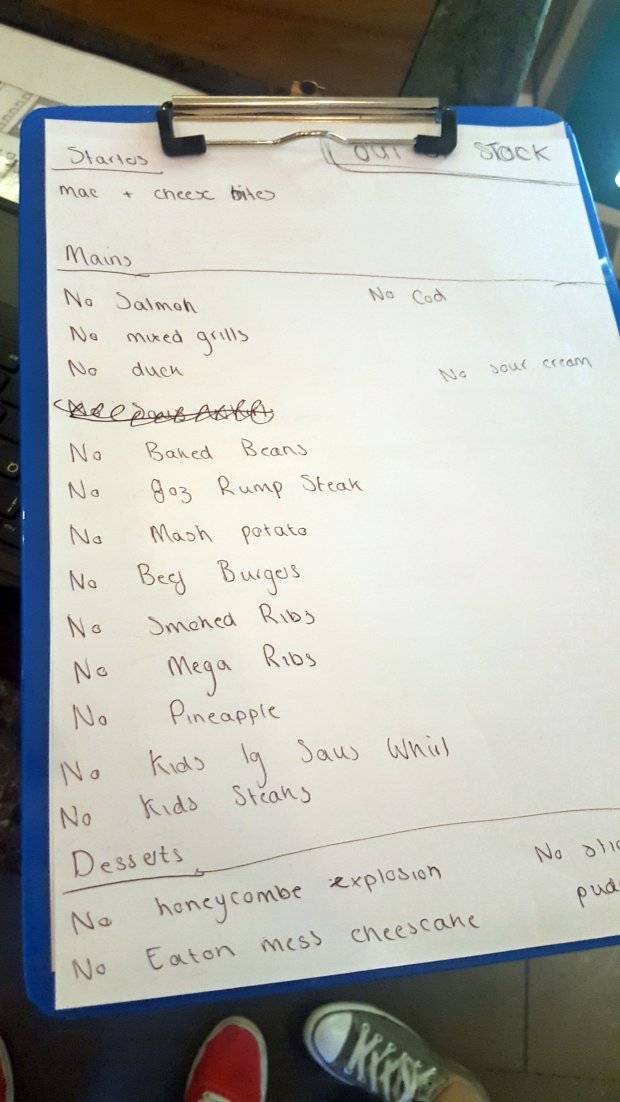 Starters
OUT OF STOCK
mac + cheese bites
Mains
No Salmon
No Cod
No mixed grills
No duck
No sour cream
No Baked Beans
No 8oz Rump Steak
No Mash potato
No Beef Burgers
No Smoked Ribs
No Mega Ribs
No Pineapple
No Kids lg Saus Whirl
No Kids Steaks
Desserts
No honeycombe explosion
No
No Eaton mess cheesecake